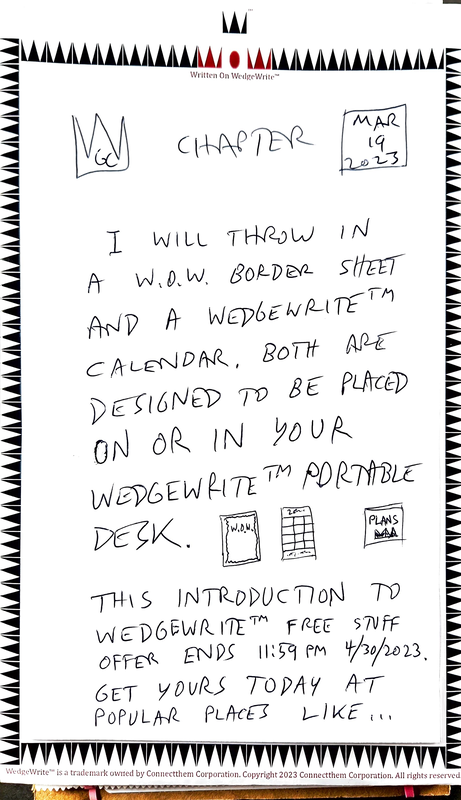 Written On WedgeWrite™
GC
CHAPTER
MAR
19
2023
I WILL THROW IN
A W.O.W. BORDER SHEET
AND A WEDGEWRITE™
CALENDAR. BOTH ARE
DESIGNED TO BE PLACED
ON OR IN YOUR
WEDGEWRITE™ PORTABLE
DESK.
W.O.W.
PLANS
THIS INTRODUCTION TO
WEDGEWRITE™ FREE STUFF
OFFER ENDS 11:59 PM 4/30/2023.
GET YOURS TODAY AT
POPULAR PLACES LIKE...
WedgeWrite™ is a trademark owned by Connectthem Corporation. Copyright 2023 Connectthem Corporation. All rights reserved